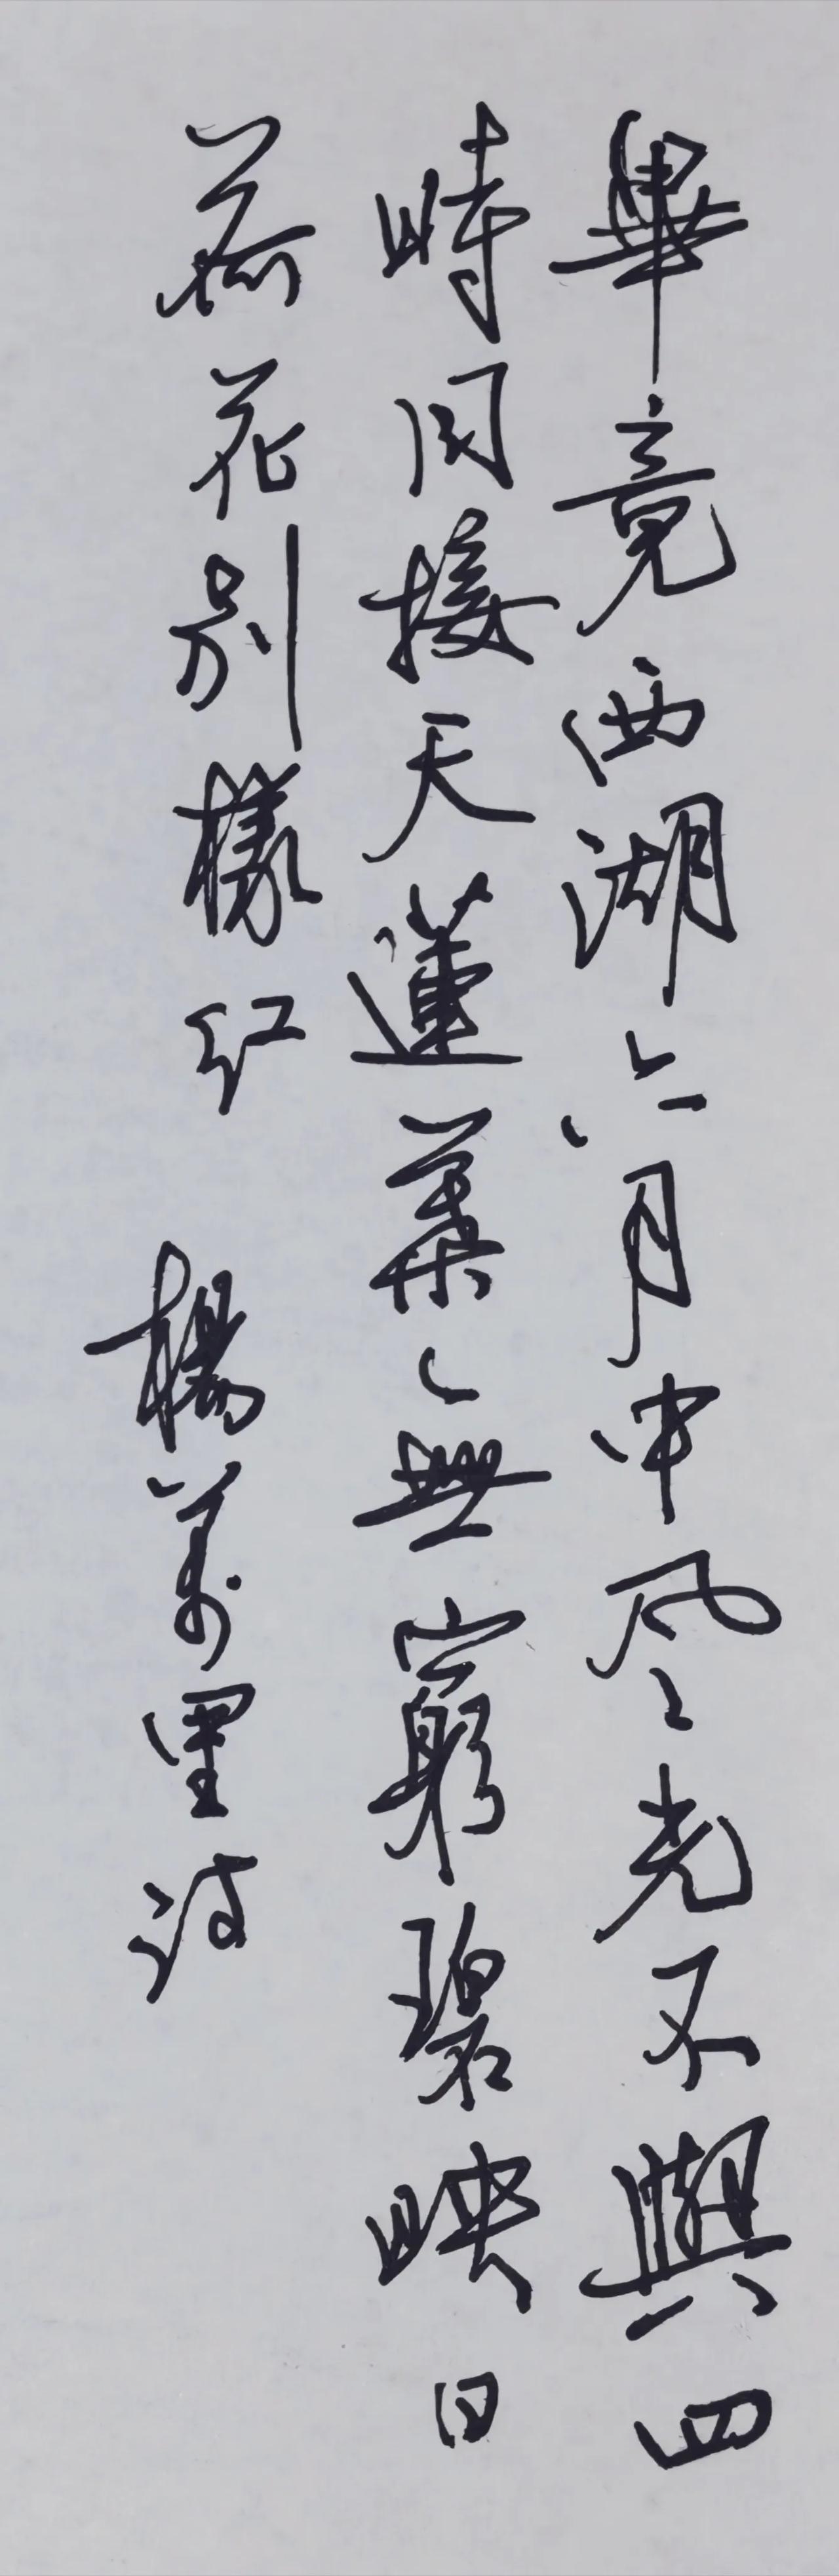 畢竟西湖六月中风光不與四
時同接天蓮葉、無窮碧映日
荷花別樣红
楊萬里诗